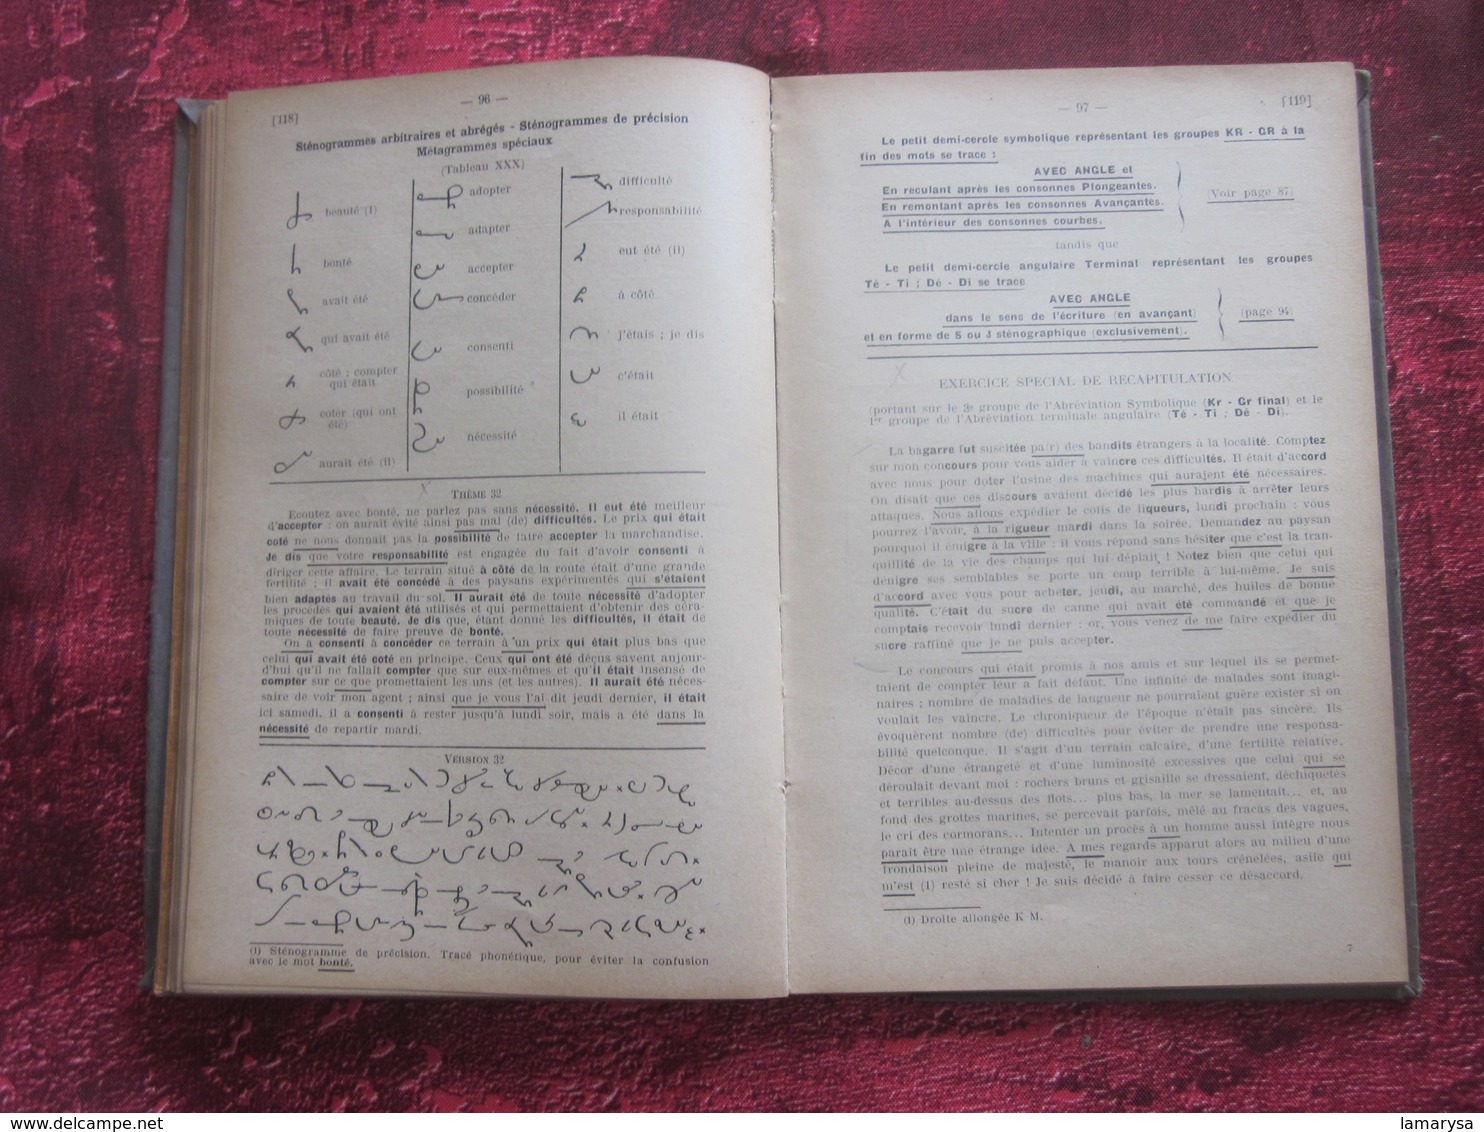 [118]
— 96 —
Sténogrammes arbitraires et abrégés - Sténogrammes de précision
Métagrammes spéciaux
(Tableau XXX)
beauté (1)
bonté
avait été
qui avait été
côté ; compter
qui était
coter (qui ont
été)
aurait été (il)
adopter
adapter
accepter
concéder
consenti
possibilité
nécessité
difficulté
responsabilité
eut été (il)
à côté
j'étais ; je dis
c'était
il était
THÈME 32
Ecoutez avec bonté, ne parlez pas sans nécessité. Il eut été meilleur
d'accepter : on aurait évité ainsi pas mal (de) difficultés. Le prix qui était
coté ne nous donnait pas la possibilité de faire accepter la marchandise.
Je dis que votre responsabilité est engagée du fait d'avoir consenti à
diriger cette affaire. Le terrain situé à côté de la route était d'une grande
fertilité ; il avait été concédé à des paysans expérimentés qui s'étaient
bien adaptés au travail du sol. Il aurait été de toute nécessité d'adopter
les procédés qui avaient été utilisés et qui permettaient d'obtenir des céra-
miques de toute beauté. Je dis que, étant donné les difficultés, il était de
toute nécessité de faire preuve de bonté.
On a consenti à concéder ce terrain à un prix qui était plus bas que
celui qui avait été coté en principe. Ceux qui ont été déçus savent aujour-
d'hui qu'il ne fallait compter que sur eux-mêmes et qu'il était insensé de
compter sur ce que promettaient les uns (et les autres). Il aurait été néces-
saire de voir mon agent ; ainsi que je vous l'ai dit jeudi dernier, il était
ici samedi, il a consenti à rester jusqu'à lundi soir, mais a été dans la
nécessité de repartir mardi.
VERSION 32
(1) Sténogramme de précision. Tracé phonétique, pour éviter la confusion
avec le mot bonté.
— 97 —
[119]
Le petit demi-cercle symbolique représentant les groupes KR - GR à la
fin des mots se trace :
AVEC ANGLE et
En reculant après les consonnes Plongeantes.
En remontant après les consonnes Avançantes.
A l'intérieur des consonnes courbes.
(Voir page 87)
tandis que
Le petit demi-cercle angulaire Terminal représentant les groupes
Té - Ti ; Dé - Di se trace
AVEC ANGLE
dans le sens de l'écriture (en avançant)
et en forme de S ou J sténographique (exclusivement).
(page 94)
EXERCICE SPECIAL DE RECAPITULATION
(portant sur le 3e groupe de l'Abréviation Symbolique (Kr - Gr final) et le
1er groupe de l'Abréviation terminale angulaire (Té - Ti ; Dé - Di).
La bagarre fut suscitée pa(r) des bandits étrangers à la localité. Comptez
sur mon concours pour vous aider à vaincre ces difficultés. Il était d'accord
avec nous pour doter l'usine des machines qui auraient été nécessaires.
On disait que ces discours avaient décidé les plus hardis à arrêter leurs
attaques. Nous allons expédier le colis de liqueurs, lundi prochain : vous
pourrez l'avoir, à la rigueur mardi dans la soirée. Demandez au paysan
pourquoi il émigre à la ville : il vous répond sans hésiter que c'est la tran-
quillité de la vie des champs qui lui déplaît ! Notez bien que celui qui
dénigre ses semblables se porte un coup terrible à lui-même. Je suis
d'accord avec vous pour acheter, jeudi, au marché, des huiles de bonne
qualité. C'était du sucre de canne qui avait été commandé et que je
comptais recevoir lundi dernier : or, vous venez de me faire expédier du
sucre raffiné que je ne puis accepter.
— Le concours qui était promis à nos amis et sur lequel ils se permet-
taient de compter leur a fait défaut. Une infinité de malades sont imagi-
naires ; nombre de maladies de langueur ne pourraient guère exister si on
voulait les vaincre. Le chroniqueur de l'époque n'était pas sincère. Ils
évoquèrent nombre (de) difficultés pour éviter de prendre une responsa-
bilité quelconque. Il s'agit d'un terrain calcaire, d'une fertilité relative.
Décor d'une étrangeté et d'une luminosité excessives que celui qui se
déroulait devant moi : rochers bruns et grisaille se dressaient, déchiquetés
et terribles au-dessus des flots... plus bas, la mer se lamentait... et, au
fond des grottes marines, se percevait parfois, mêlé au fracas des vagues,
le cri des cormorans... Intenter un procès à un homme aussi intègre nous
paraît être une étrange idée. A mes regards apparut alors au milieu d'une
frondaison pleine de majesté, le manoir aux tours crénelées, asile qui
m'est (1) resté si cher ! Je suis décidé à faire cesser ce désaccord.
(1) Droite allongée K M.
7
lamarysa